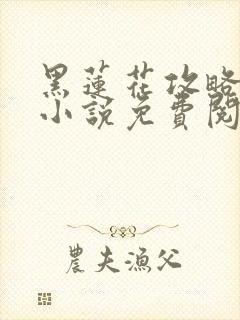 黑蓮花攻略
小說免費閱
農夫漁父